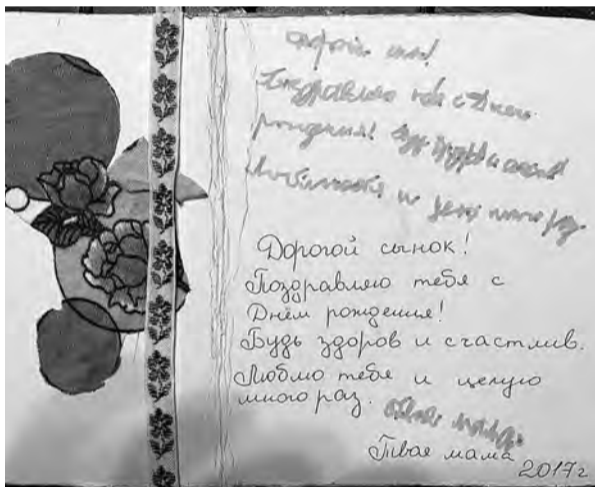 сын!
Поздравляю тебя с Днем
рождения! Будь здоров и
Люблю тебя и целую много раз.
Дорогой сынок!
Поздравляю тебя с
Днём рождения!
Будь здоров и счастлив.
Люблю тебя и целую
много раз.
мама
Твоя мама
2017г